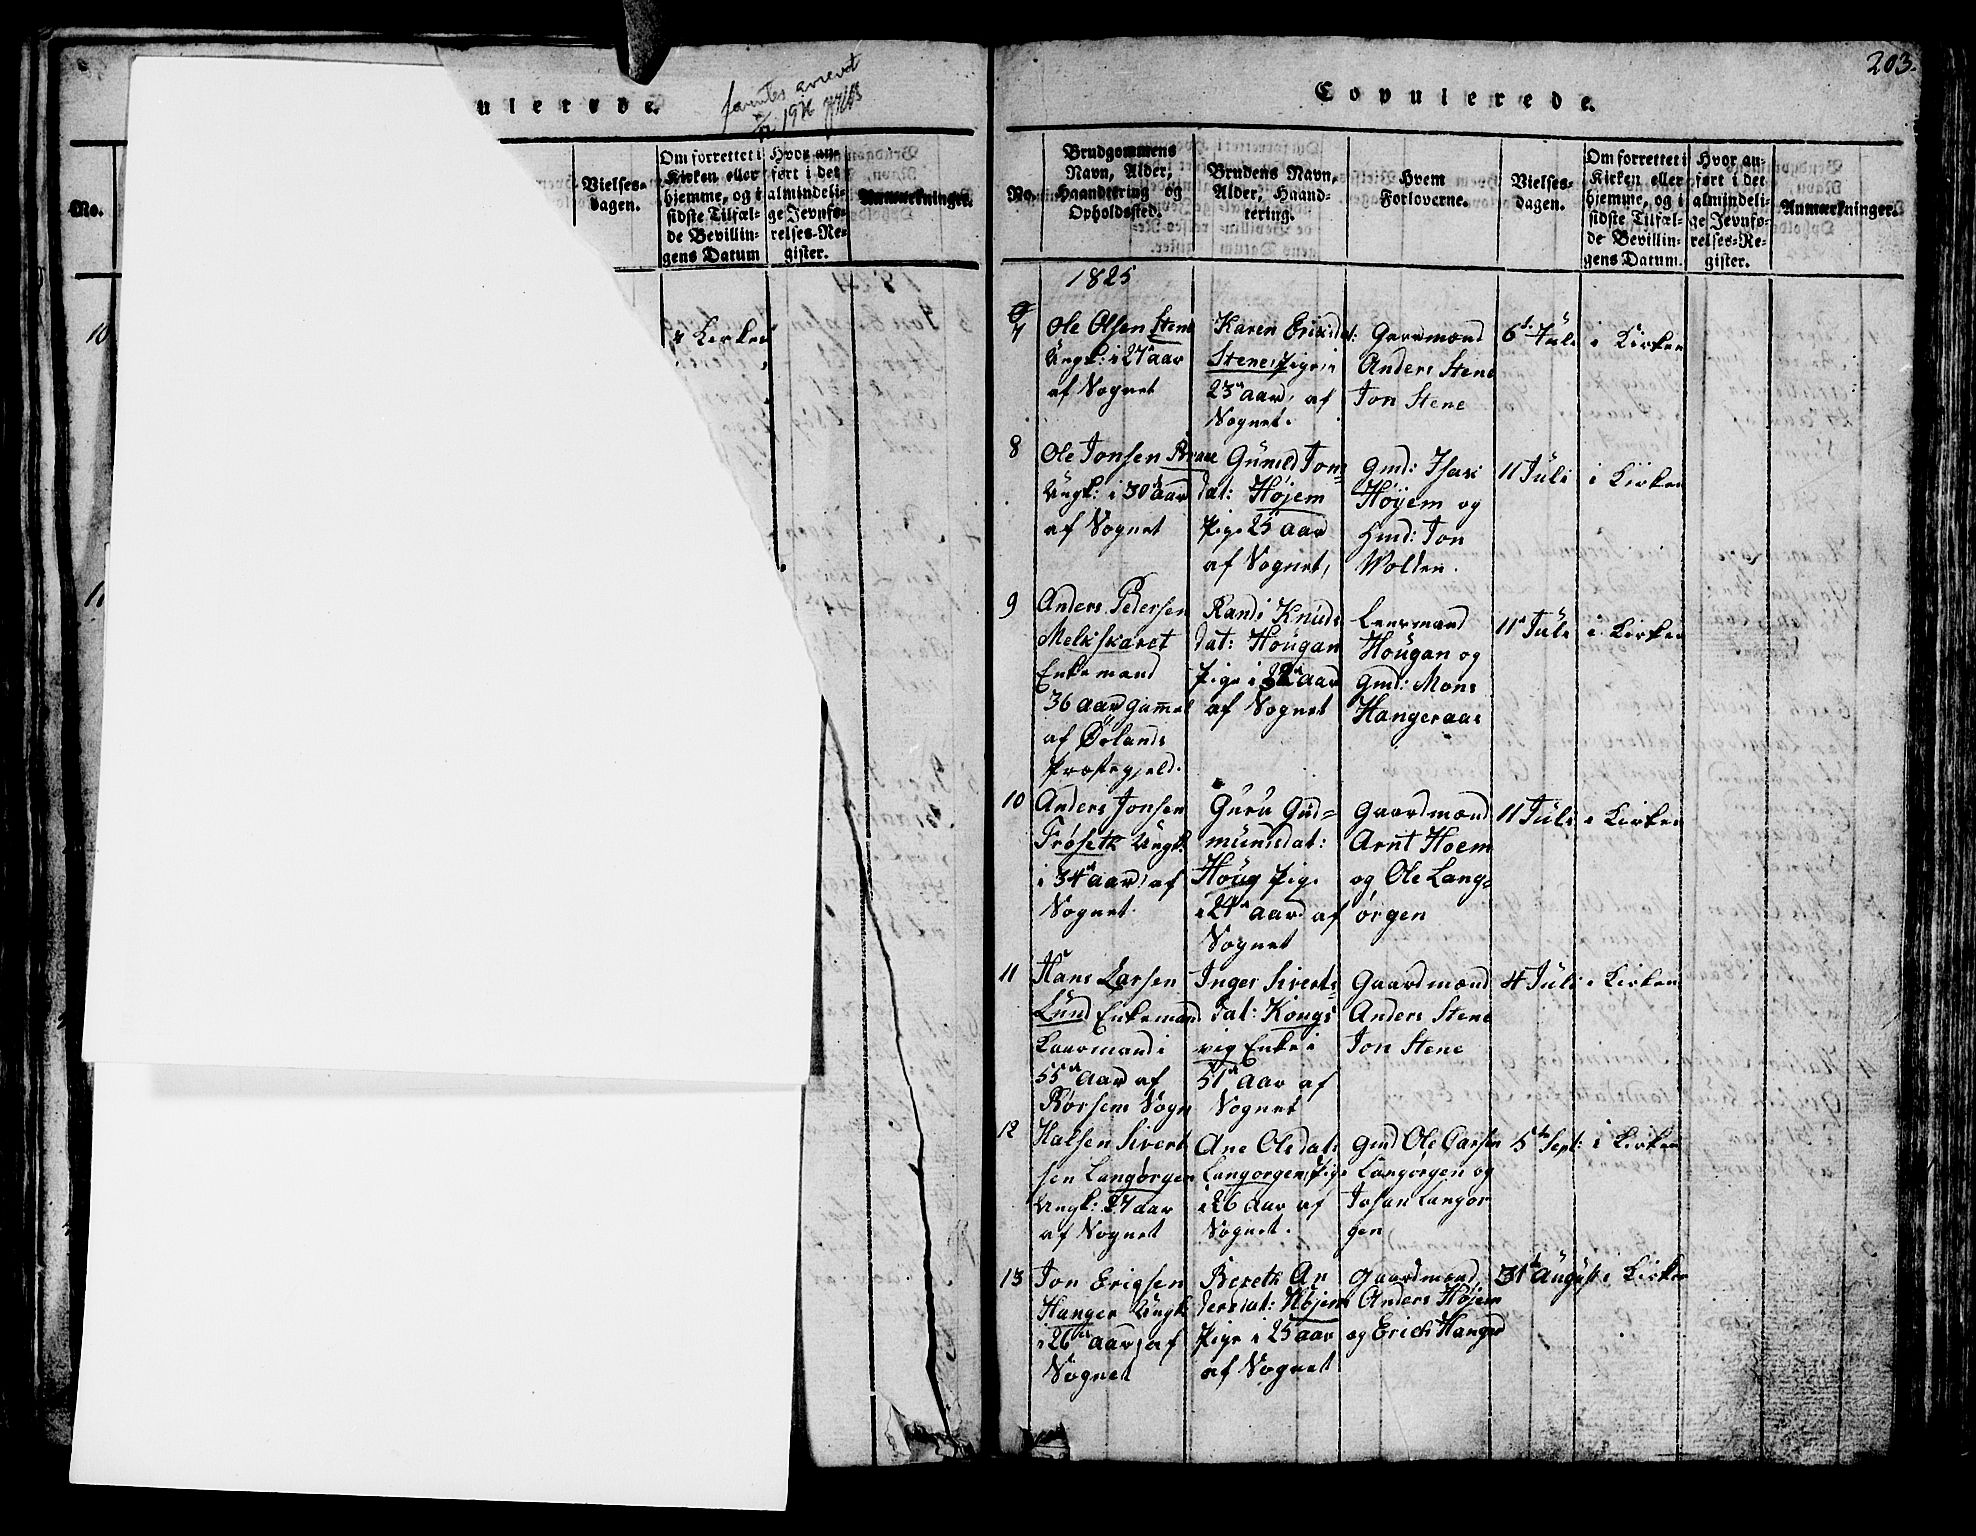 ulerede.
No.
Vielses-
dagen.
Om forrettet i
Kirken eller
hjemme, og i
sidste Tilfæl-
de Bevillin-
gens Datum
Hvor an-
ført i det
almindeli-
ge Jevnfø-
relses-Re-
gister.
Anmærkninger.
10
Kirken
11
203.
Copulerede.
No.
Brudgommens
Navn, Alder,
Haandtering og
Opholdssted.
Brudens Navn,
Alder, Haand-
tering.
Hvem
Forloverne.
Vielses-
dagen.
Om forrettet i
Kirken eller
hjemme, og i
sidste Tilfæl-
de Bevillin-
gens Datum.
Hvor an-
ført i det
almindeli-
ge Jevnfø-
relses-Re-
gister.
Anmærkninger.
1825
7
Ole Olsen Stene
Ungk: i 27 aar
af Sognet
Karen Ericsdat:
Stene, Pige i
23 aar, af
Sognet.
Gaardmænd
Anders Stene
Jon Stene
6te Juli
i Kirken
8
Ole Jonsen Braae
Ungk: i 30 aar
af Sognet
Gunild Jons-
dat: Højem
Pige 25 aar
af Sognet,
Gmd: Isak
Höyem og
Hmd: Jon
Wolden.
11 Juli
i Kirken
9
Anders Pedersen
Melkskaret
Enkemand
36 aar gamel
af Ørlands
Præstegjeld.
Randi Knuds
dat: Hougan
Pige i 32 aar
af Sognet
Leensmand
Hougan og
Gmd: Mons
Hangeraas
11 Juli
i Kirken
10
Anders Jonsen
Frøseth Ungk:
i 34 aar, af
Sognet.
Guru Gud-
mundsdat:
Houg Pige
i 24 aar af
Sognet
Gaardmænd
Arnt Hoem
og Ole Lang-
örgen
11 Juli
i Kirken
11
Hans Larsen
Lund Enkemand
Gaarmand i
55 Aar af
Börsens Sogn
Inger Sivert-
dat: Kongs
vig Enke i
51 Aar af
Sognet
Gaardmænd
Anders Stene
Jon Stene
4 Juli
i Kirken
12
Halsen Sivert
sen Langørgen
Ungk: 27 aar
af Sognet
Ane Olsdat:
Langorgen, Pige
i 26 Aar af
Sognet.
Gmd Ole Larsen
Langörgen og
Johan Langör
gen
5te Sept:
i Kirken
13
Jon Ericsen
Hanger Ungk
i 26 aar, af
Sognet
Bereth An
dersdat: Höjem
Pige i 25 aar
af Sognet
Gaardmænd
Anders Höjem
og Erich Hanger
31te August
i Kirken